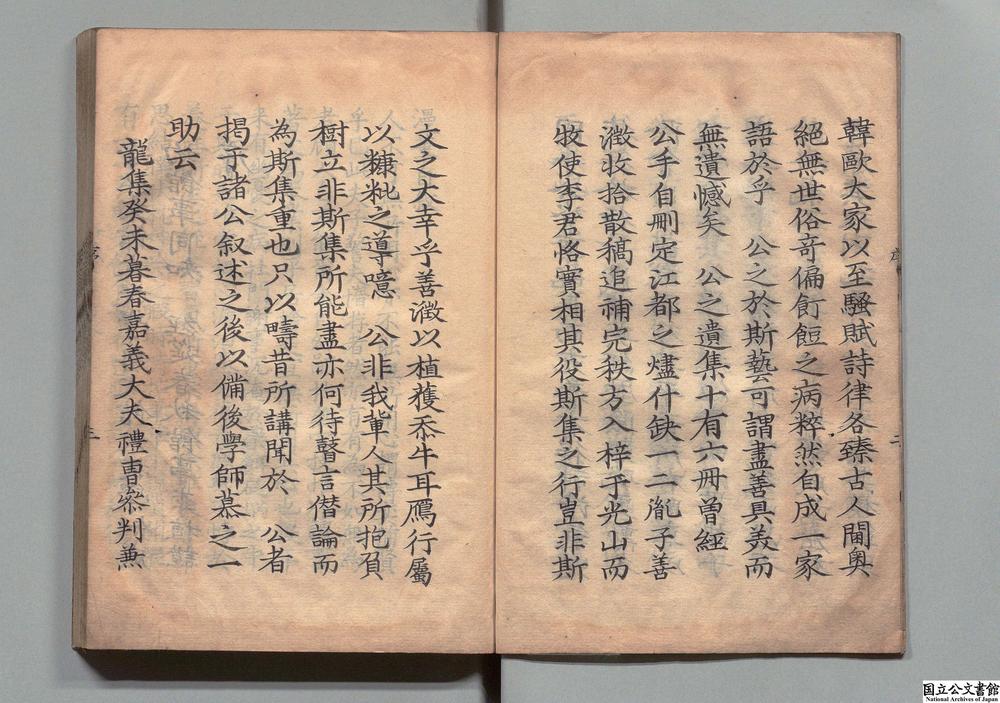 韓歐大家以至騷賦詩律各臻古人閫奧
絕無世俗奇偏飣餖之病粹然自成一家
語於乎　公之於斯藝可謂盡善具美而
無遺憾矣　公之遺集十有六冊曾經
公手自刪定江都之燼什缺一二胤子善
澂收拾散稿追補完秩方入梓于光山而
牧使李君恪實相其役斯集之行豈非斯
文之大幸乎善澂以植獲忝牛耳鴈行屬
以糠粃之導噫　公非我軰人其所抱負
樹立非斯集所能盡亦何待瞽言僭論而
為斯集重也只以疇昔所講聞於　公者
揭于諸公叙述之後以備後學師慕之一
助云
龍集癸未暮春嘉義大夫禮曺叅判兼
序
二
序
三
国立公文書館
National Archives of Japan